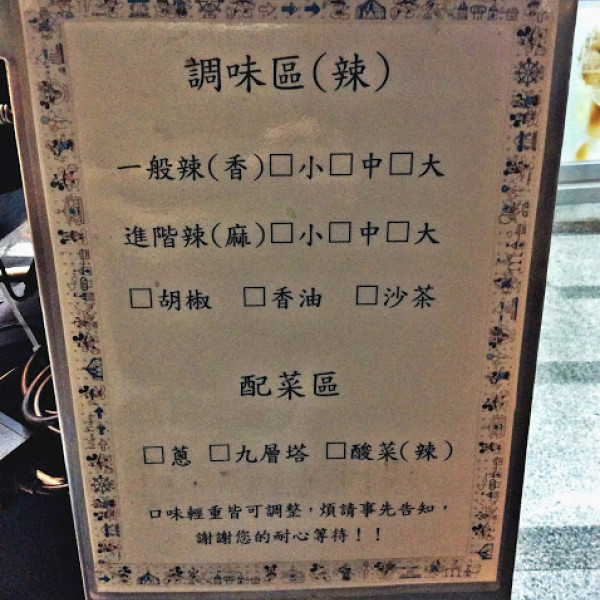 調味區(辣)
一般辣(香)□小□中□大
進階辣(麻)□小□中□大
□胡椒 □香油 □沙茶
配菜區
□蔥 □九層塔 □酸菜(辣)
口味輕重皆可調整,煩請事先告知,
謝謝您的耐心等待!!